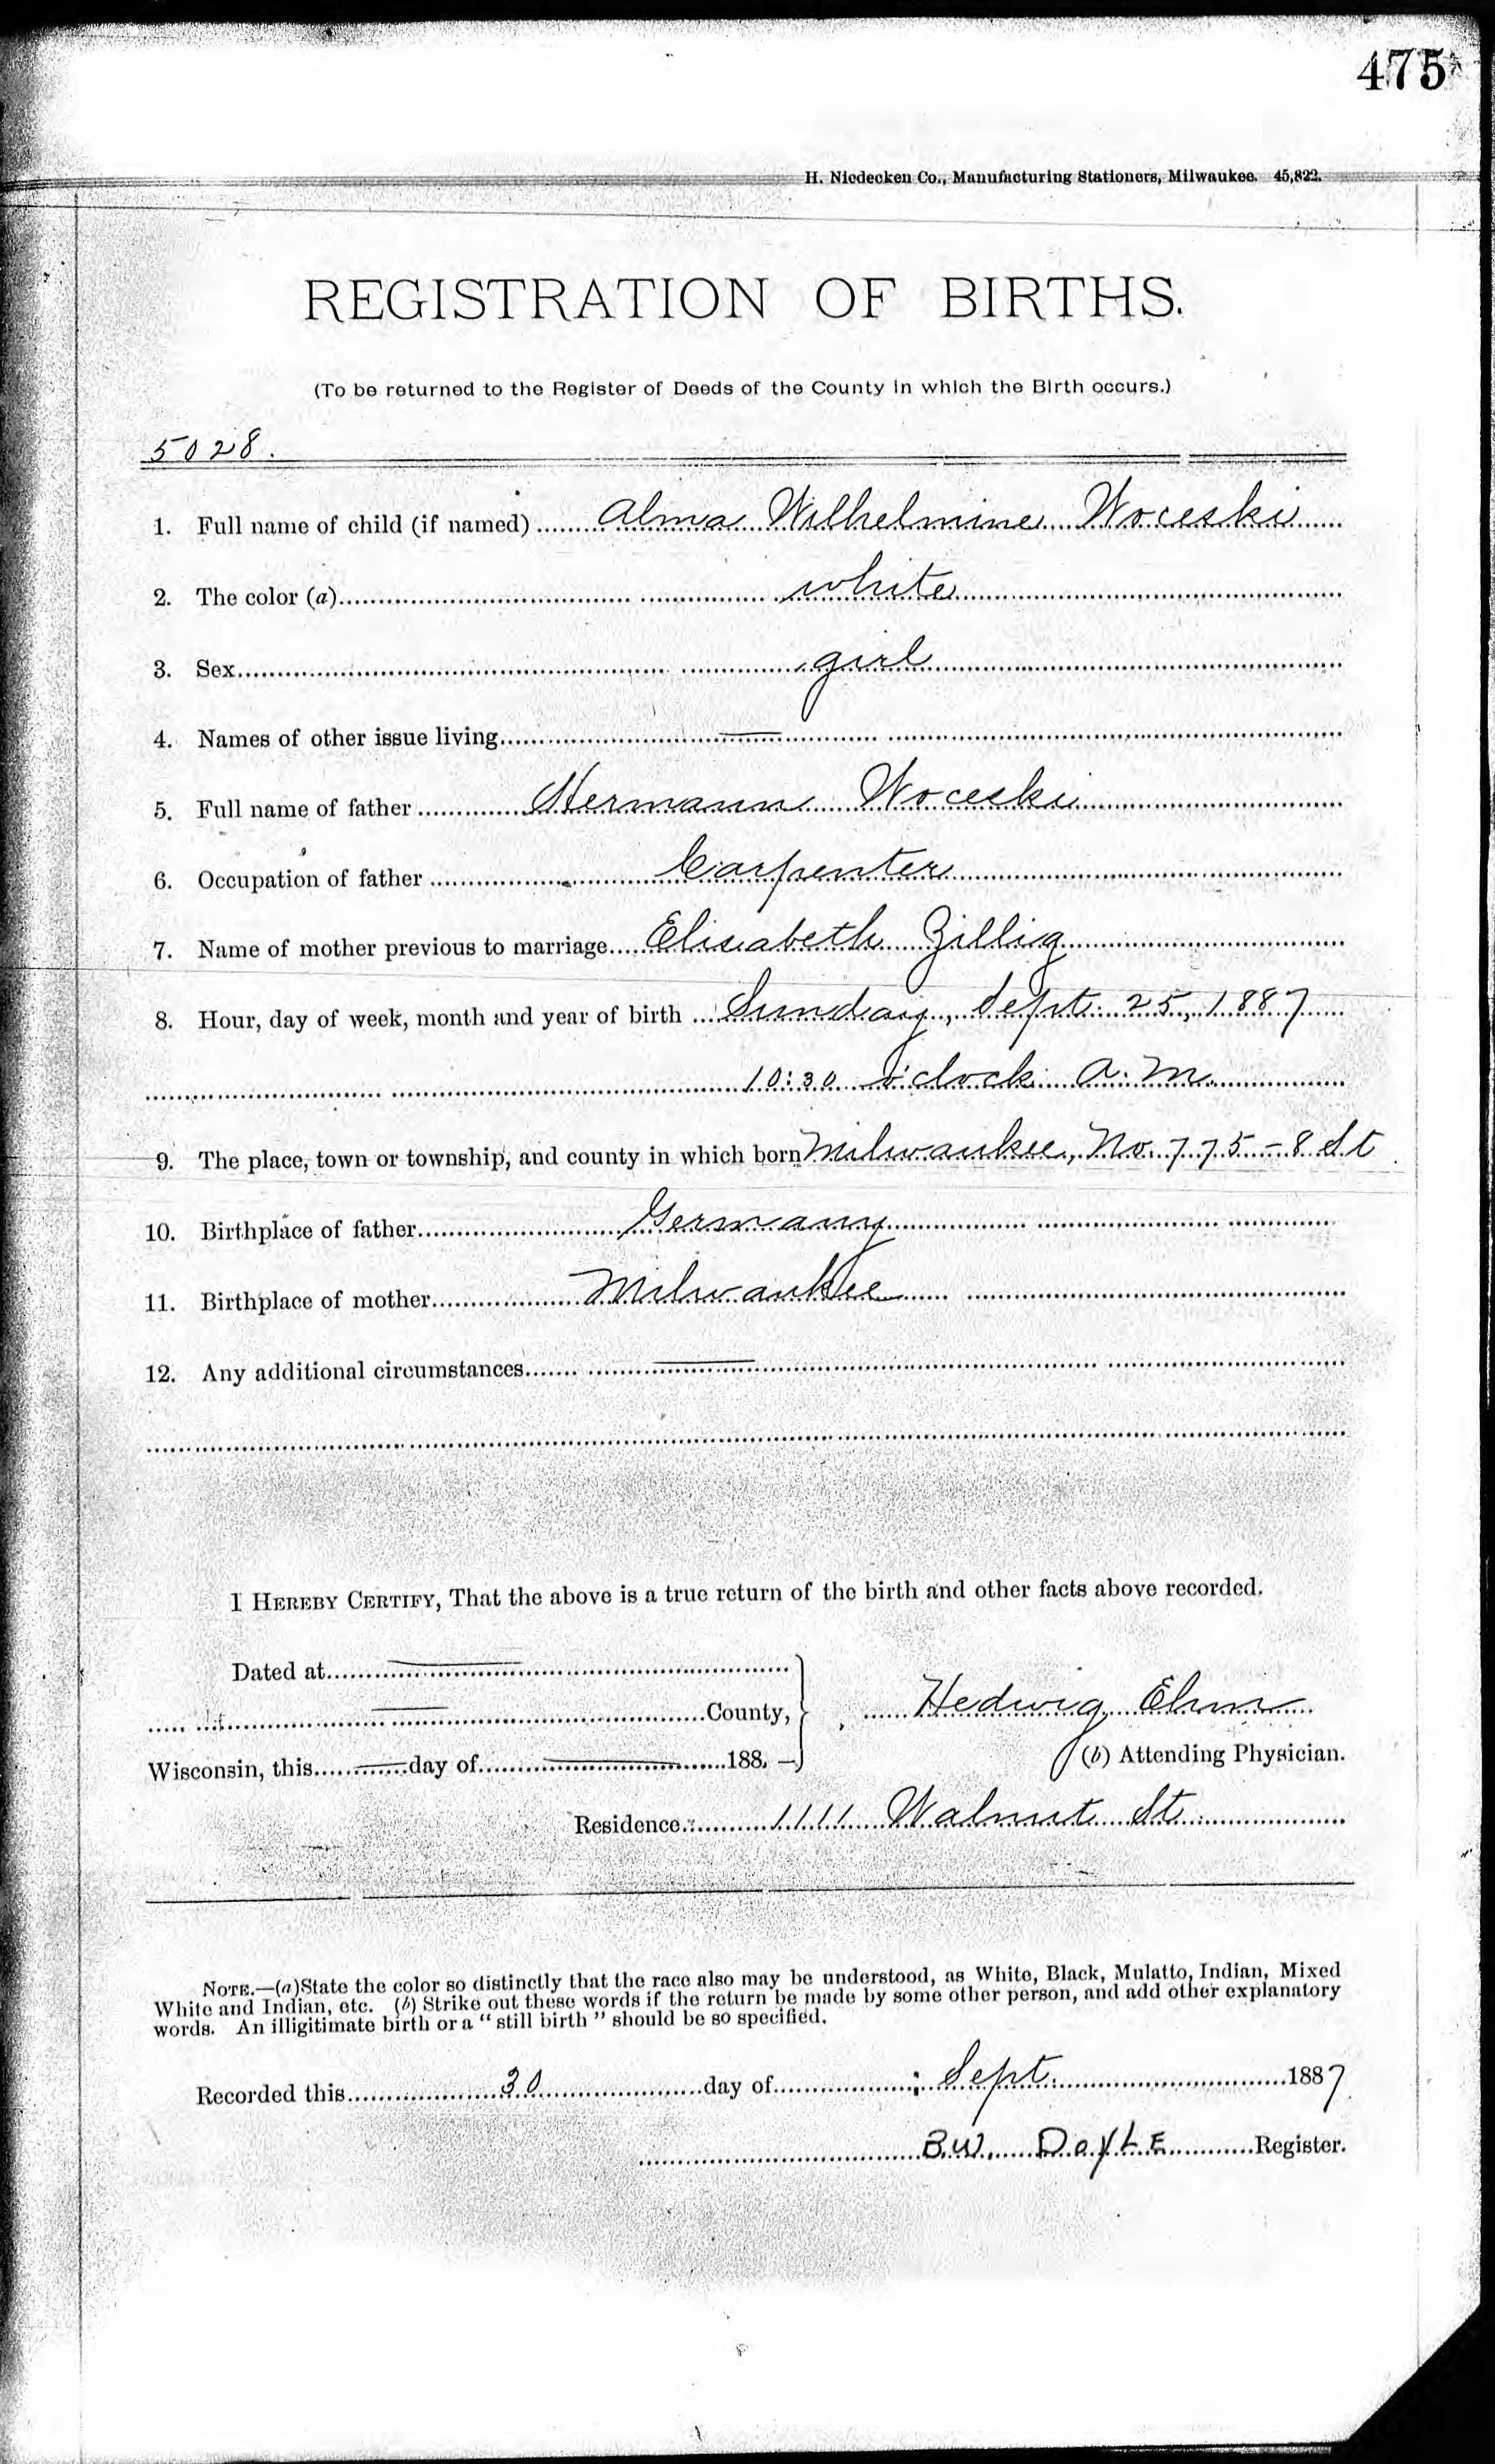 475
H. Niedecken Co., Manufacturing Stationers, Milwaukee. 45,822.
REGISTRATION OF BIRTHS.
(To be returned to the Register of Deeds of the County in which the Birth occurs.)
5028.
1. Full name of child (if named) Alma Wilhelmine Woceski
2. The color (a) white
3. Sex girl
4. Names of other issue living —
5. Full name of father Hermann Woceski
6. Occupation of father Carpenter
7. Name of mother previous to marriage Elisabeth Zillig
8. Hour, day of week, month and year of birth Sunday, Sept. 25, 1887
10:30 o'clock A.M.
9. The place, town or township, and county in which born Milwaukee, No. 775 - 8 St
10. Birthplace of father Germany
11. Birthplace of mother Milwaukee
12. Any additional circumstances —
I HEREBY CERTIFY, That the above is a true return of the birth and other facts above recorded.
Dated at —
— County,
Hedwig Ehm
Wisconsin, this — day of — 188. —
(b) Attending Physician.
Residence 1111 Walnut St.
NOTE.—(a) State the color so distinctly that the race also may be understood, as White, Black, Mulatto, Indian, Mixed
White and Indian, etc. (b) Strike out these words if the return be made by some other person, and add other explanatory
words. An illigitimate birth or a “ still birth ” should be so specified.
Recorded this 30 day of Sept. 1887
B.W. DoyLE Register.